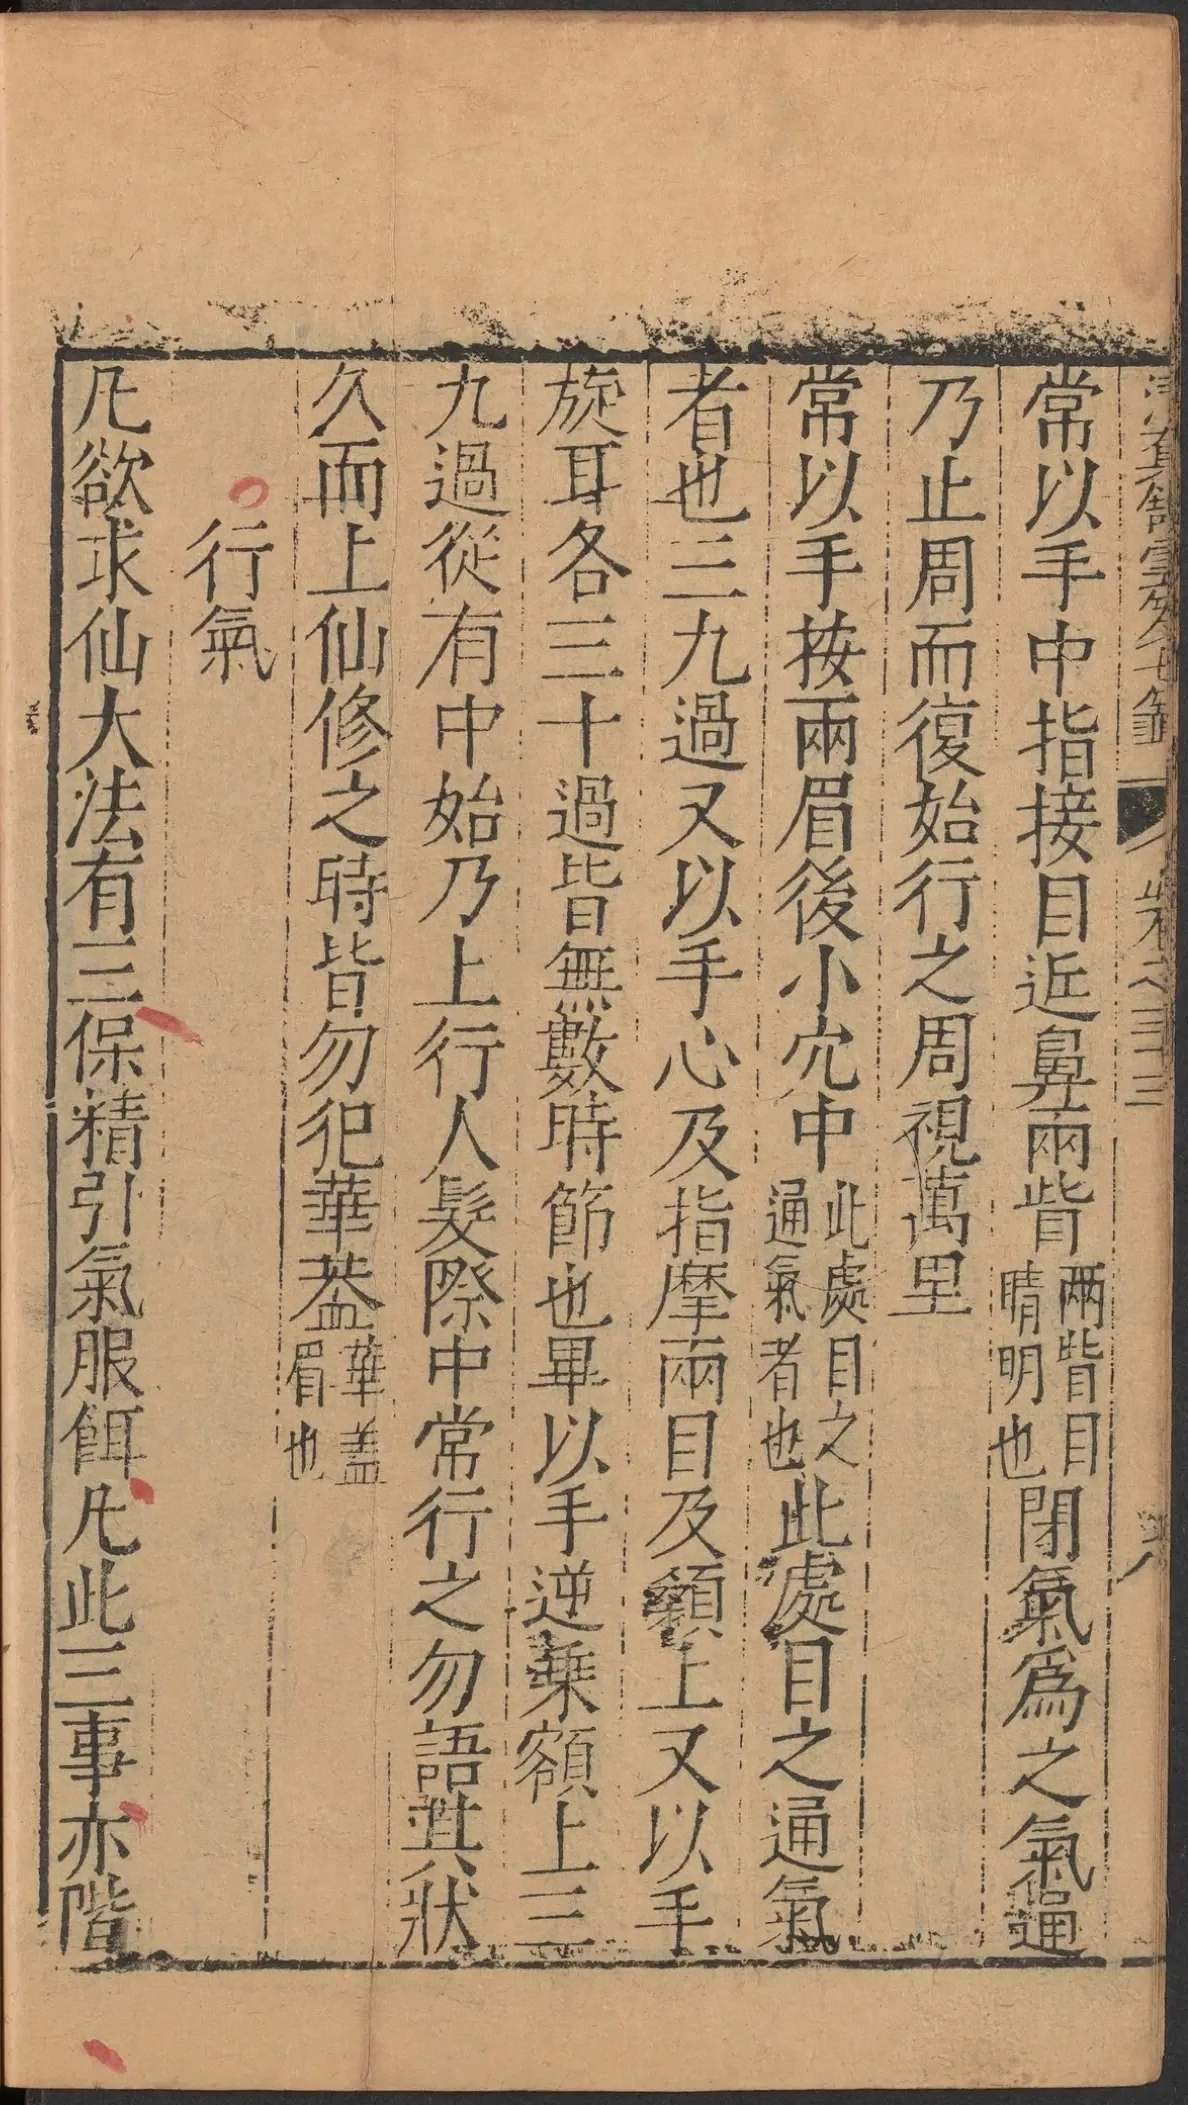 清真館雲笈七籤 卷之三十三
常以手中指接目近鼻兩眥兩眥目睛明也閉氣爲之氣通
乃止周而復始行之周視萬里
常以手按兩眉後小穴中此處目之通氣者也此處目之通氣
者也三九過又以手心及指摩兩目及顙上又以手
旋耳各三十過皆無數時節也畢以手逆乗額上三
九過從有中始乃上行人髮際中常行之勿語其狀
久而上仙修之時皆勿犯華葢華盖眉也
行氣
凡欲求仙大法有三保精引氣服餌凡此三事亦階